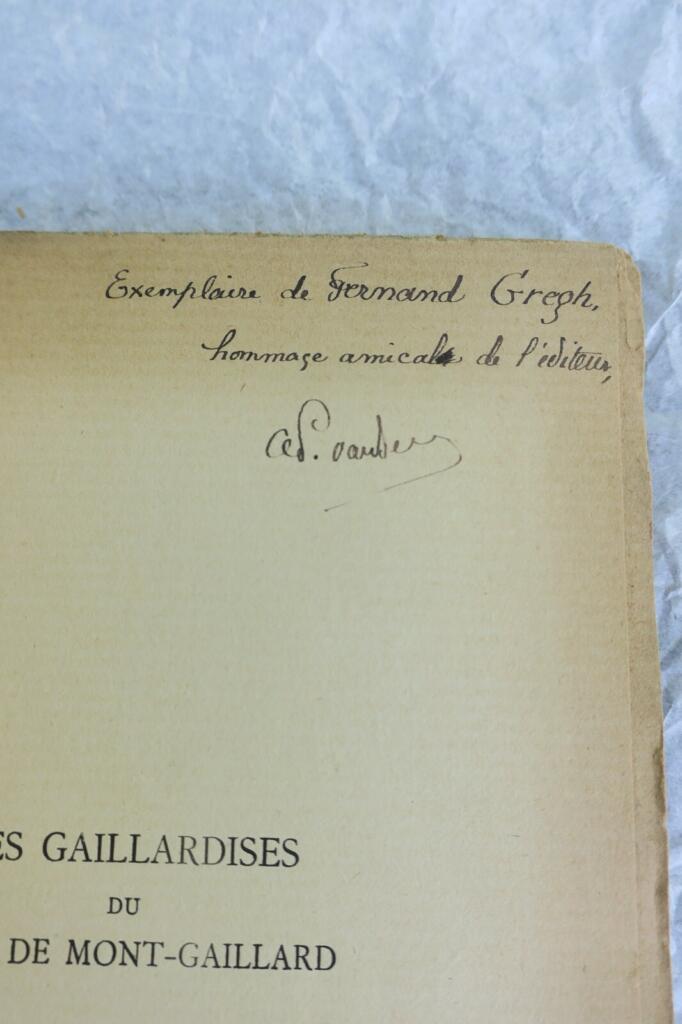 Exemplaire de Fernand Gregh,
hommage amical de l'éditeur,
Ad. van Bever
ES GAILLARDISES
DU
DE MONT-GAILLARD